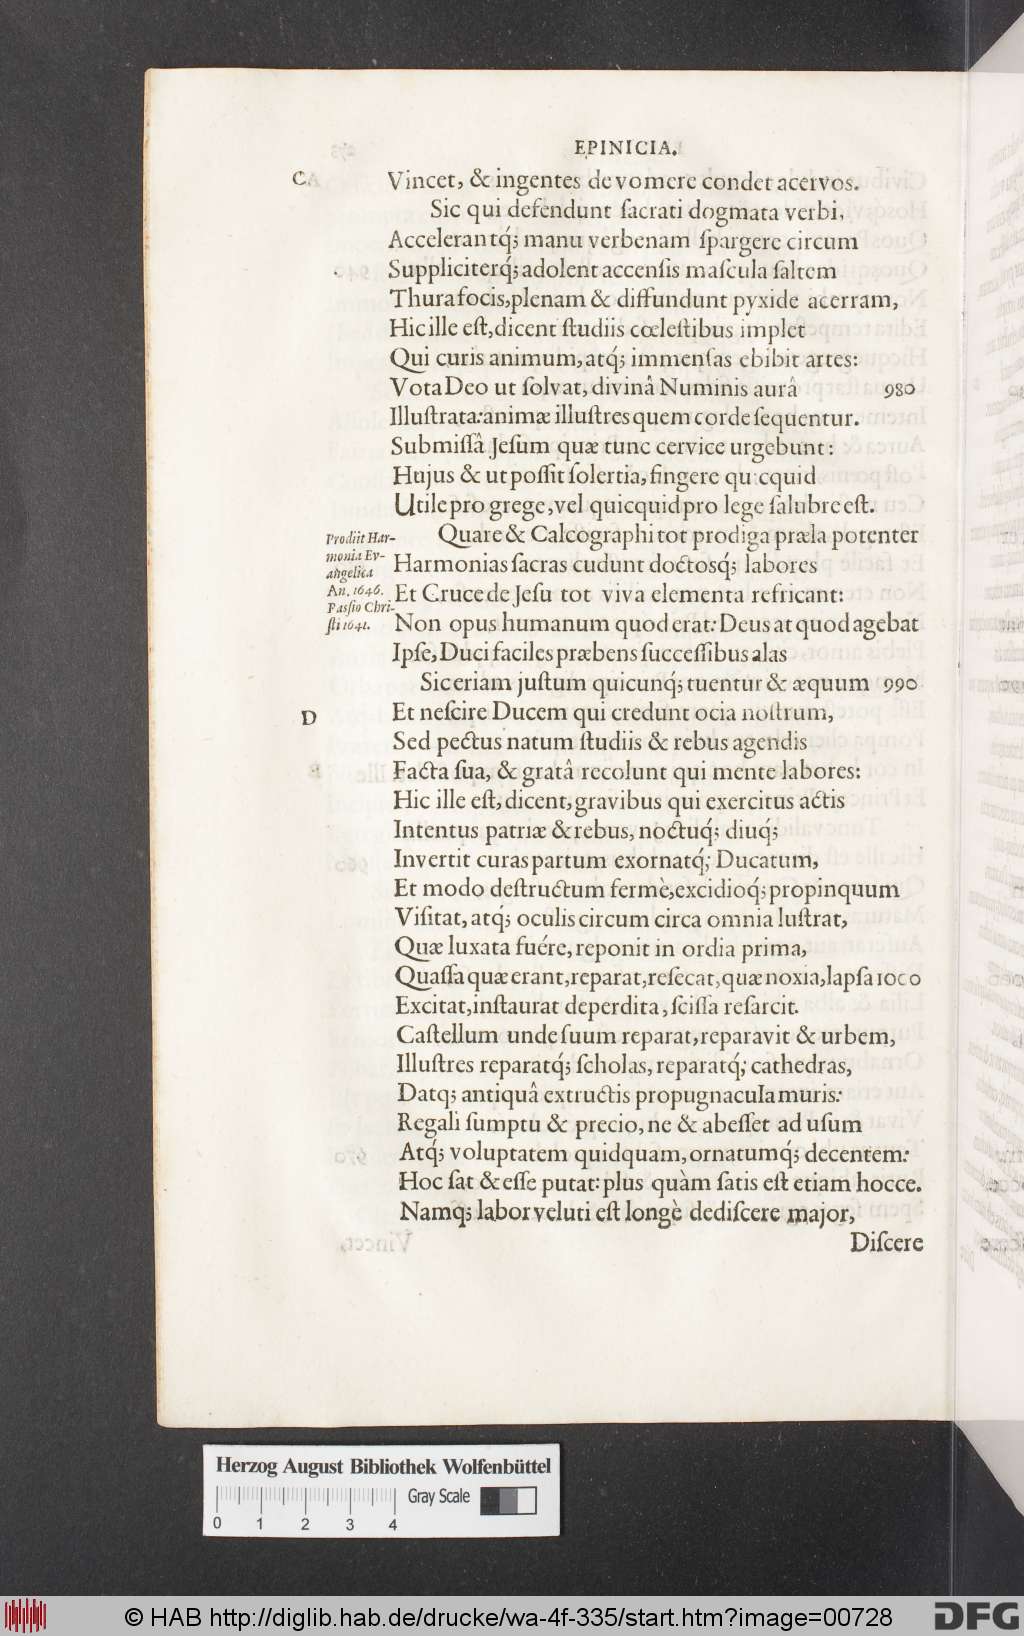 EPINICIA.
CA
Vincet, & ingentes de vomere condet acervos.
Sic qui defendunt ſacrati dogmata verbi,
Accelerantq́; manu verbenam ſpargere circum
Suppliciterq́; adolent accenſis maſcula ſaltem
Thura focis, plenam & diffundunt pyxide acerram,
Hic ille eſt, dicent ſtudiis cœleſtibus implet
Qui curis animum, atq́; immenſas ebibit artes:
Vota Deo ut ſolvat, divinâ Numinis aurâ 980
Illuſtrata: animæ illuſtres quem corde ſequentur.
Submiſſâ Jeſum quæ tunc cervice urgebunt:
Hujus & ut poſſit ſolertia, fingere qu cquid
Utile pro grege, vel quicquid pro lege ſalubre eſt.
Quare & Calcographi tot prodiga præla potenter
Prodiit Har-
monia Ev-
angelica
An. 1646.
Paſſio Chri-
ſti 1641.
Harmonias ſacras cudunt doctosq́; labores
Et Cruce de Jeſu tot viva elementa refricant:
Non opus humanum quod erat: Deus at quod agebat
Ipſe, Duci faciles præbens ſucceſſibus alas
Sic etiam juſtum quicunq́; tuentur & æquum 990
D
Et neſcire Ducem qui credunt ocia noſtrum,
Sed pectus natum ſtudiis & rebus agendis
Facta ſua, & gratâ recolunt qui mente labores:
Hic ille eſt, dicent, gravibus qui exercitus actis
Intentus patriæ & rebus, noctuq́; diuq́;
Invertit curas partum exornatq́; Ducatum,
Et modo deſtructum fermè, excidioq́; propinquum
Viſitat, atq́; oculis circum circa omnia luſtrat,
Quæ luxata fuére, reponit in ordia prima,
Quaſſa quæ erant, reparat, reſecat, quæ noxia, lapſa 1000
Excitat, inſtaurat deperdita, ſciſſa reſarcit.
Caſtellum unde ſuum reparat, reparavit & urbem,
Illuſtres reparatq́; ſcholas, reparatq́; cathedras,
Datq; antiquâ extructis propugnacula muris:
Regali ſumptu & precio, ne & abeſſet ad uſum
Atq́; voluptatem quidquam, ornatumq́; decentem:
Hoc ſat & eſſe putat: plus quàm ſatis eſt etiam hocce.
Namq; labor veluti eſt longè dediſcere major,
Diſcere
Herzog August Bibliothek Wolfenbüttel
Gray Scale
0 1 2 3 4
© HAB http://diglib.hab.de/drucke/wa-4f-335/start.htm?image=00728
DFG